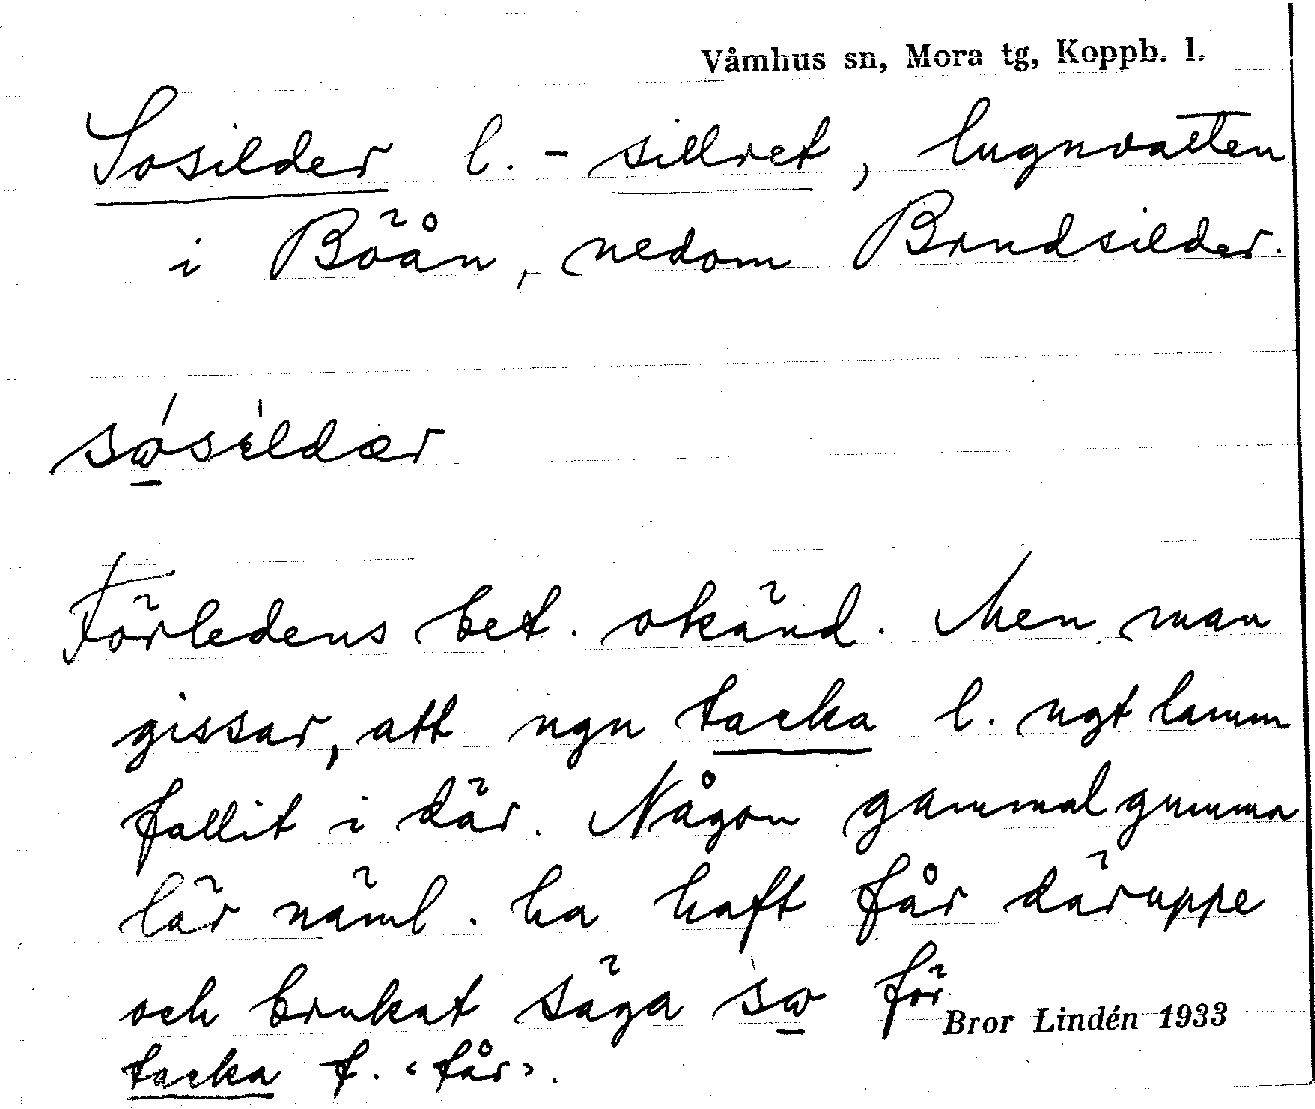 Våmhus sn, Mora tg, Koppb. l.
Sosilder l. - sillret, lugnvatten
i Böån, nedom Brudsilder.
sωsildær
Förledens bet. okänd. Men man
gissar, att ngn tacka l. ngt lamm
fallit i där. Någon gammal gumma
lär näml. ha haft får däruppe
och brukat säga sω för
Bror Lindén 1933
tacka f. ‹får›.